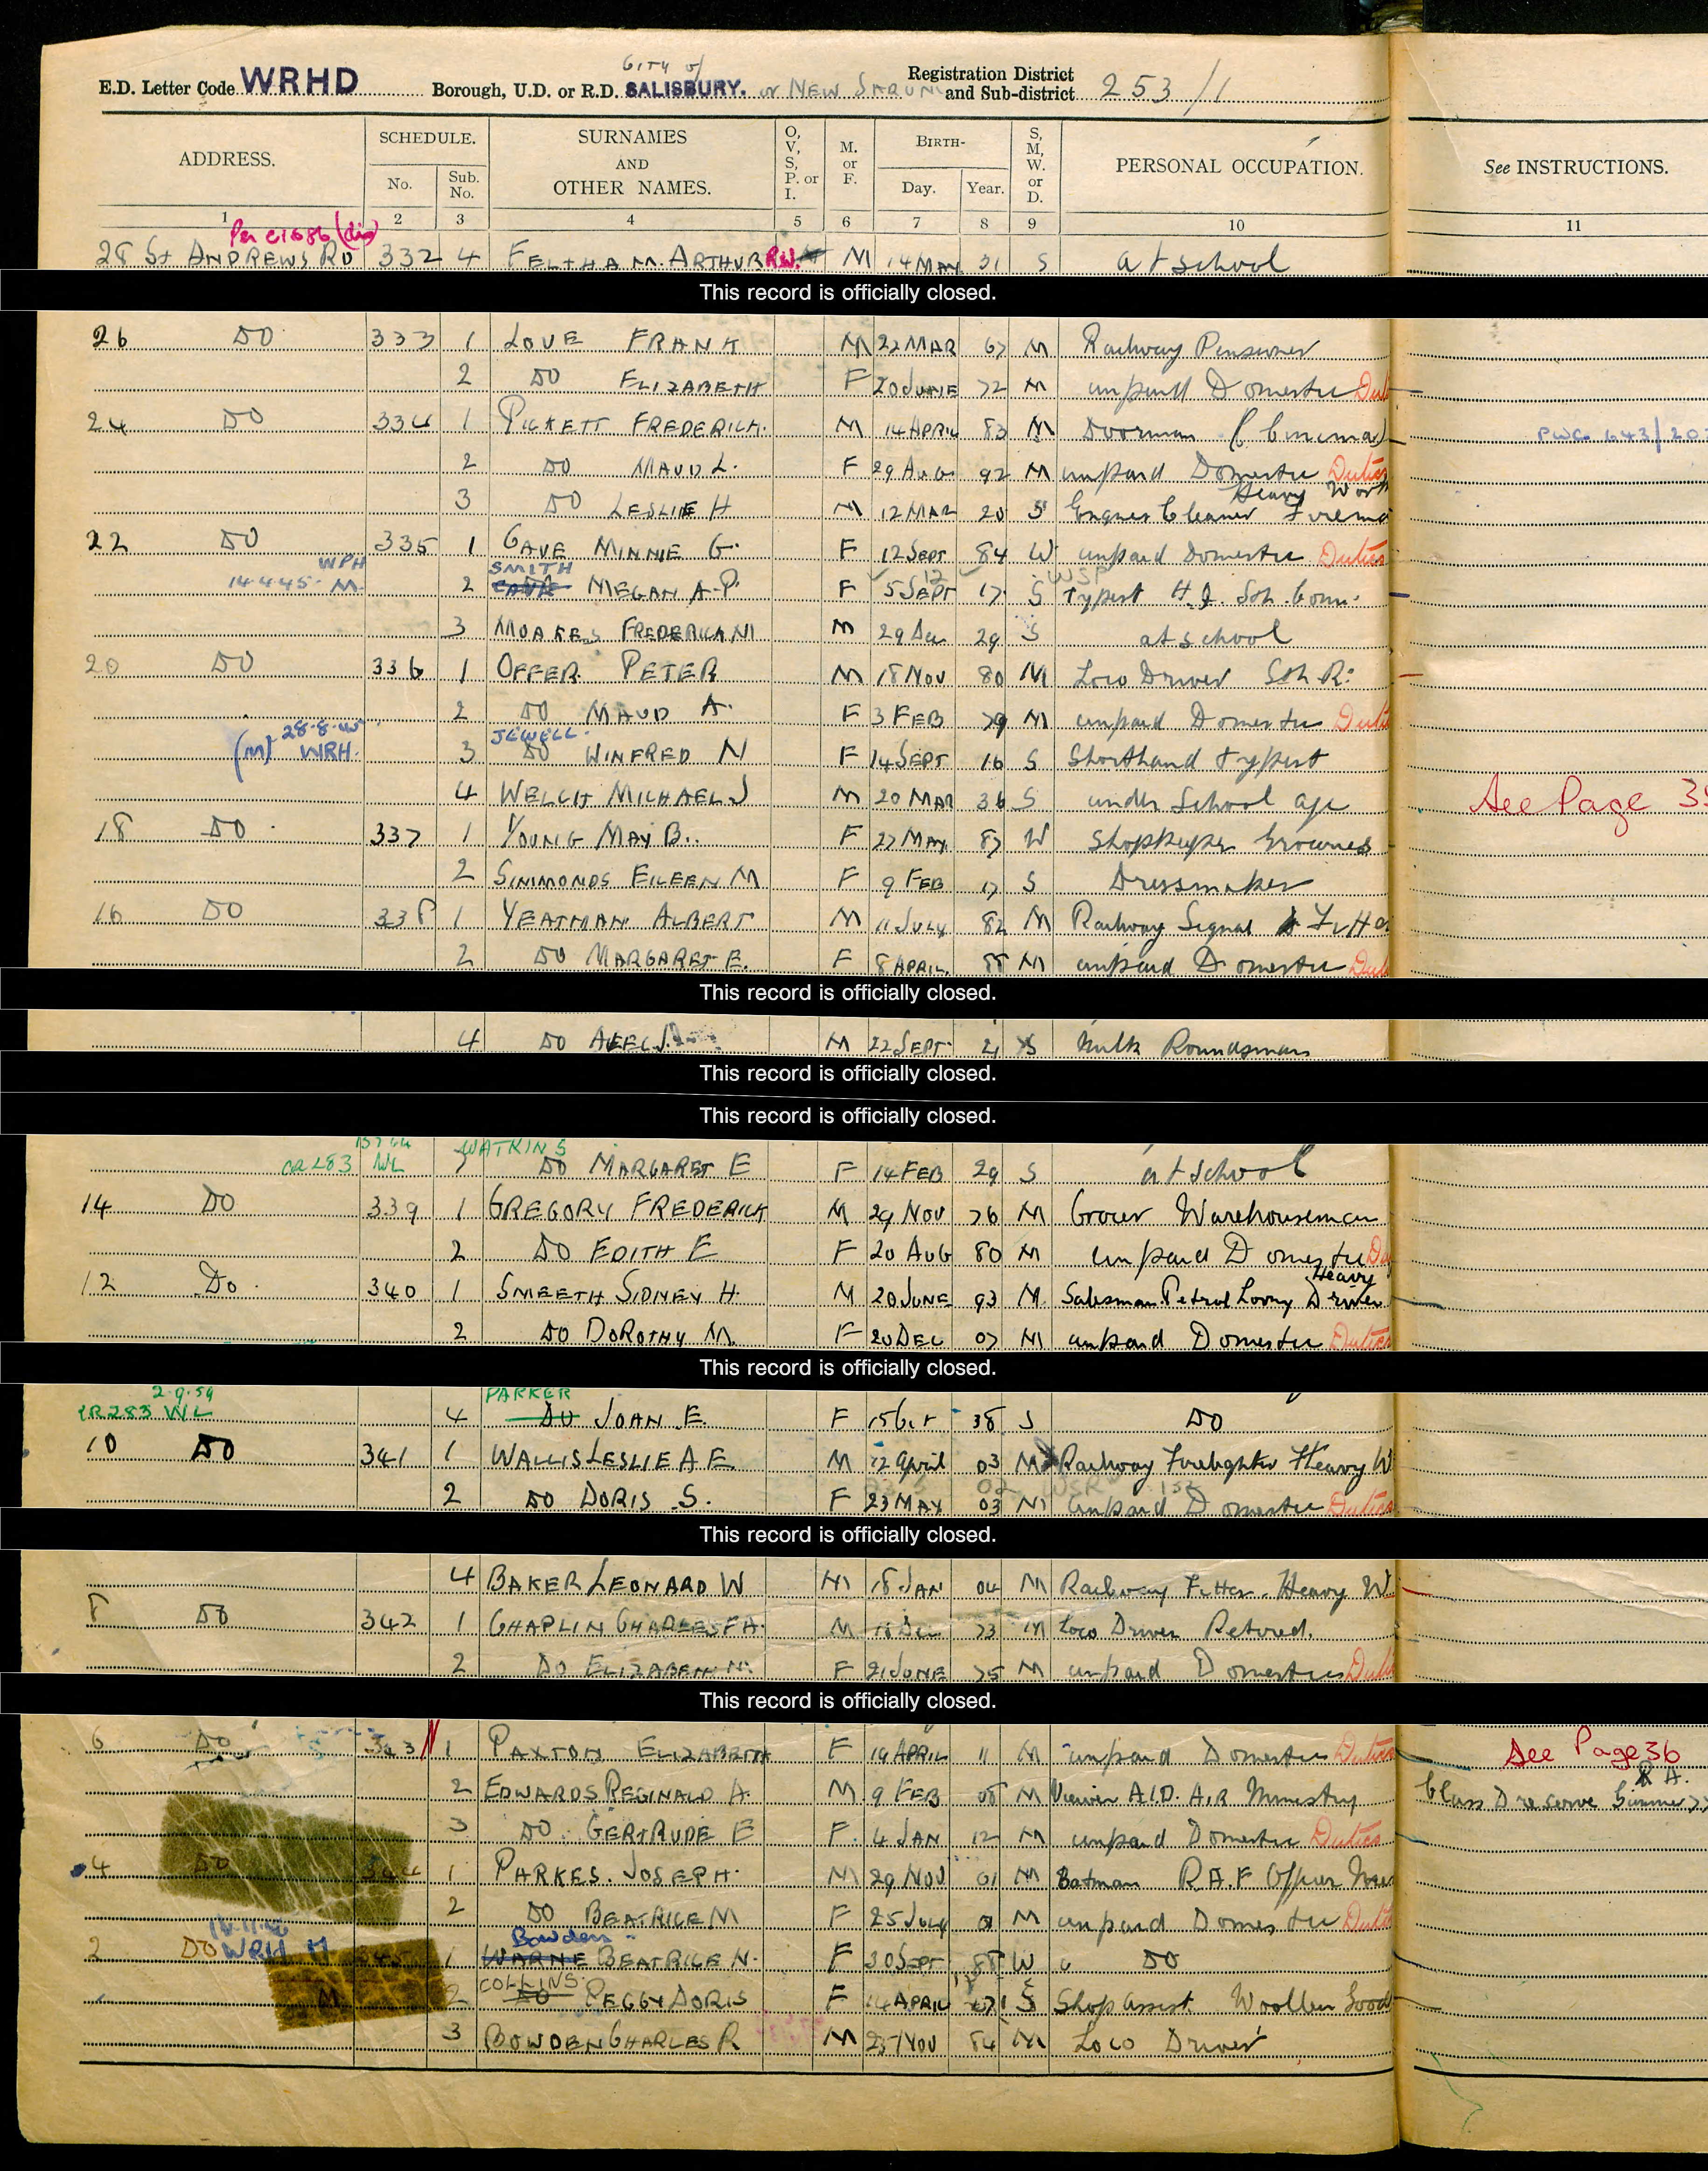 City of
E.D. Letter Code WRHD Borough, U.D. or R.D. SALISBURY. or NEW SARUM Registration District and Sub-district 253/1
ADDRESS. SCHEDULE. No. Sub. No. SURNAMES AND OTHER NAMES. O, V, S, P. or I. M. or F. BIRTH- Day. Year. S, M, W. or D. PERSONAL OCCUPATION. See INSTRUCTIONS.
1 2 3 4 5 6 7 8 9 10 11
28 St ANDREWS RD 332 4 FELTHAM. ARTHUR R.W. M 14 MAY 31 S at school
This record is officially closed.
26 DO 333 1 LOVE FRANK M 22 MAR 67 M Railway Pensioner
2 DO ELIZABETH F 20 JUNE 72 M unpaid Domestic
24 DO 334 1 PICKETT FREDERICK. M 14 APRIL 83 M Doorman (Cinema)
2 DO MAUD L. F 29 AUG 92 M unpaid Domestic Duties
Heavy Work
3 DO LESLIE H M 12 MAR 20 S Engine Cleaner
22 DO 335 1 CAVE MINNIE G. F 12 SEPT 84 W unpaid Domestic Duties
WPH SMITH
14.4.45. M. 2 CAVE MEGAN A.P. F 5 SEPT 12 17 S Typist H.Q. Sth. Com.
3 MOAKES FREDERICK M 29 Dec 29 S at school
20 DO 336 1 OFFER PETER M 18 NOV 80 M Loco Driver Sth R:
2 DO MAUD A. F 3 FEB 79 M unpaid Domestic
28.8.45 JEWELL.
(M) WRH. 3 DO WINFRED N F 14 SEPT 16 S Shorthand typist
4 WELCH MICHAEL J M 20 MAR 36 S under School age See Page
18 DO 337 1 YOUNG MAY B. F 27 MAY 87 W Shopkeeper Groceries
2 SIMMONDS EILEEN M F 9 FEB 17 S Dressmaker
16 DO 338 1 YEATMAN ALBERT M 11 JULY 82 M Railway Signal
2 DO MARGARET E. F 8 APRIL. 88 M unpaid Domestic
This record is officially closed.
4 DO ALEC J. M 22 SEPT 21 S Milk Roundsman
This record is officially closed.
This record is officially closed.
WATKINS
CR283 WL 7 DO MARGARET E F 14 FEB 29 S at school
14 DO 339 1 GREGORY FREDERICK M 29 NOV 76 M Grocer Warehouseman
2 DO EDITH E F 20 AUG 80 M unpaid Domestic
Heavy
12 DO 340 1 SMEETH SIDNEY H. M 20 JUNE 93 M Salesman Petrol Lorry Driver
2 DO DOROTHY M. F 20 DEC 07 M unpaid Domestic Duties
This record is officially closed.
2.9.59 PARKER
CR283 WL 4 DO JOAN E. F 15 Oct 38 S DO
10 DO 341 1 WALLIS LESLIE A E M 12 April 03 M Railway Firelighter Heavy W
2 DO DORIS S. F 23 MAY 03 M unpaid Domestic Duties
This record is officially closed.
4 BAKER LEONARD W M 18 JAN 04 M Railway Fitter. Heavy W
8 DO 342 1 CHAPLIN CHARLES F A. M 18 Dec 73 M Loco Driver Retired.
2 DO ELIZABETH M. F 21 JUNE 75 M unpaid Domestic
This record is officially closed.
6 DO 343 1 PAXTON ELIZABETH F 19 APRIL 11 M unpaid Domestic Duties See Page 36
2 EDWARDS REGINALD A. M 9 FEB 08 M Viewer A.I.D. AIR Ministry Class D reserve
3 DO. GERTRUDE E F. 4 JAN 12 M unpaid Domestic Duties
4 DO 344 1 PARKES. JOSEPH. M 29 NOV 01 M Batman R.A.F Officers
2 DO BEATRICE M F 25 July 01 M unpaid Domestic
Bowden
2 DO WRH M 345 1 WARNE BEATRICE N. F 30 SEPT 88 W DO
COLLINS.
M 2 DO PEGGY DORIS F 14 APRIL 17 S Shop Assist Woollen Goods
3 BOWDEN CHARLES R M 25 NOV 84 M Loco Driver